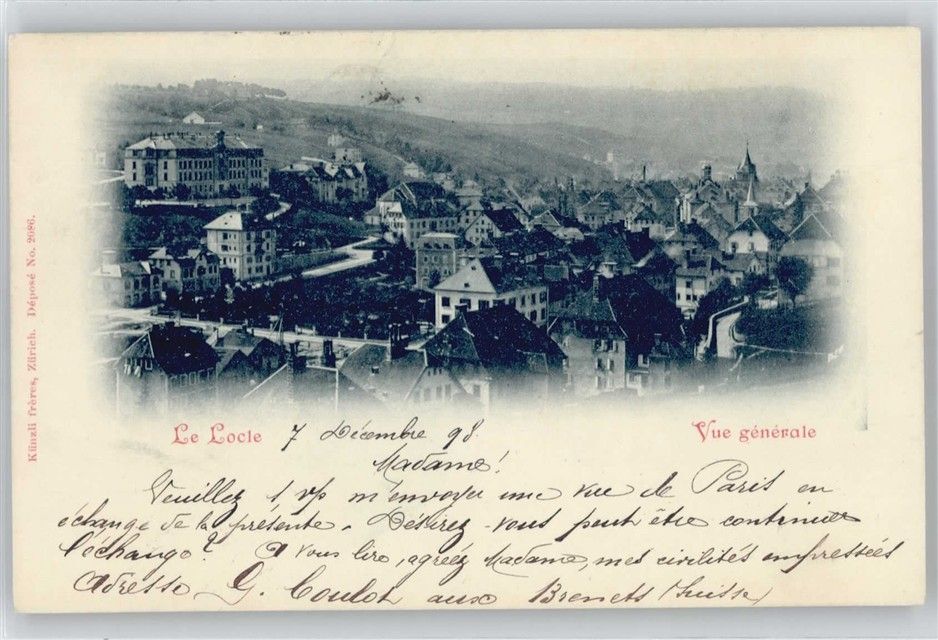 Künzli frères, Zürich. Déposé No. 2086.
Le Locle 7 Décembre 98. Vue générale
Madame!
Veuillez s vp m'envoyer une vue de Paris en
échange de la présente. Désirez-vous peut être continuer
l'échange? A vous lire, agréez Madame, mes civilités empressées
Adresse G. Coulot aux Brenets (Suisse)